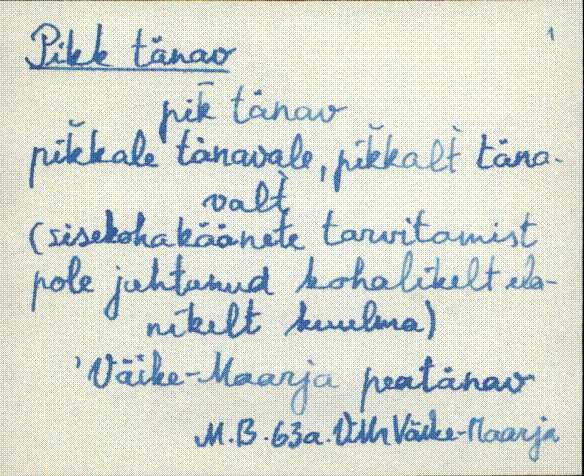 Pikk tänav 1
pik̄ tänav
pik̆kale tänavale, pik̆kalt̀ täna-
valt̀
(sisekohakäänete tarvitamist
pole juhtunud kohalikelt ela-
nikelt kuulma)
'Väike-Maarja peatänav
M.B. 63a. VMr Väike-Maarja